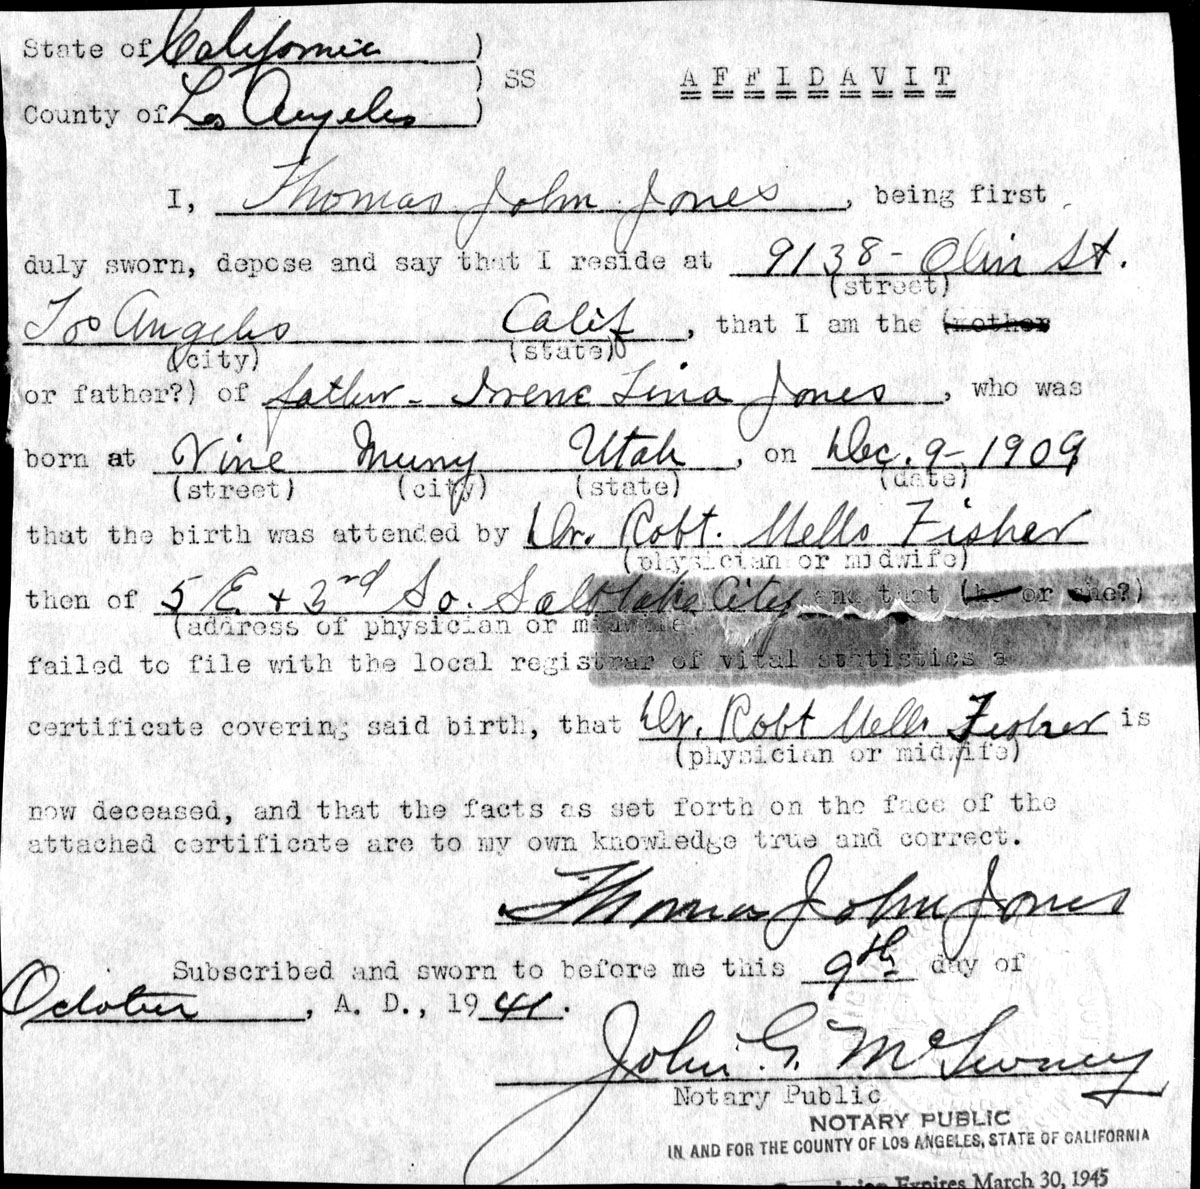 State of California )
) SS A F F I D A V I T
County of Los Angeles )
I, Thomas John Jones, being first
duly sworn, depose and say that I reside at 9138 - Olin St.
(street)
Los Angeles Calif, that I am the (mother
(city) (state)
or father?) of father - Irene Lina Jones, who was
born at Vine Murry Utah, on Dec. 9 - 1909
(street) (city) (state) (date)
that the birth was attended by Dr. Robt. Mells Fisher
(physician or midwife)
then of 5 E + 3rd So. Salt Lake City and that (he or she?)
(address of physician or midwife)
failed to file with the local registrar of vital statistics a
certificate covering said birth, that Dr. Robt Mells Fisher is
(physician or midwife)
now deceased, and that the facts as set forth on the face of the
attached certificate are to my own knowledge true and correct.
Thomas John Jones
Subscribed and sworn to before me this 9th day of
October, A. D., 1941.
John G. McSweney
Notary Public
NOTARY PUBLIC
IN AND FOR THE COUNTY OF LOS ANGELES, STATE OF CALIFORNIA
Commission Expires March 30, 1945